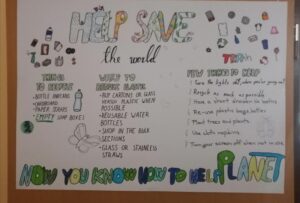 HELP SAVE
the world
TRASH
THINGS
TO
RECYCLE
- BOTTLE AND CANS
- CARDBOARD
- PAPER STRAWS
- EMPTY SOAP BOXES
WAYS TO
REDUCE PLASTIC
- BUY CARTONS OR GLASS
VERSUS PLASTIC WHEN
POSSIBLE
- REUSABLE WATER
BOTTLES
- SHOP IN THE BULK
SECTIONS
- GLASS OR STAINLESS
STRAWS
FEW THINGS TO HELP
Turn the lights off, when you're going out
Recycle as much as possible
Have a short shower
Re-use plastic bags
Plant trees and plants
Use cloth napkins
Turn your screen off when not in use
NOW YOU KNOW HOW TO HELP PLANET